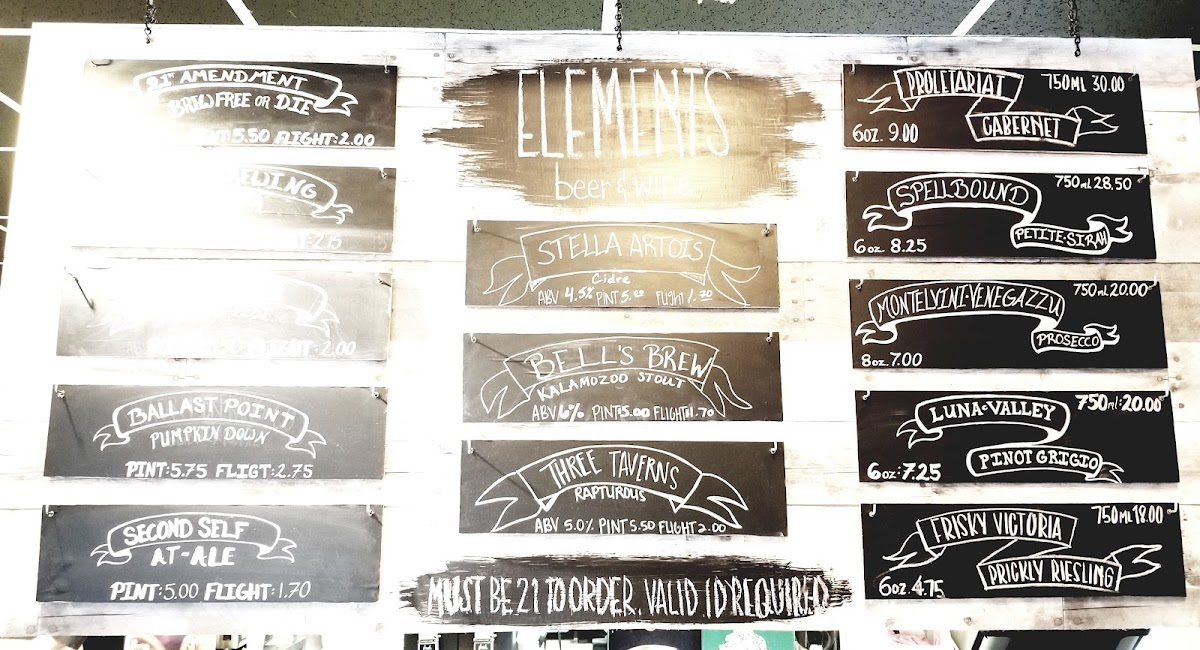 21st AMENDMENT
BREW FREE OR DIE
PINT:5.50 FLIGHT:2.00
2.75
.50 FLIGHT:2.00
BALLAST POINT
PUMPKIN DOWN
PINT:5.75 FLIGT:2.75
SECOND SELF
AT-ALE
PINT:5.00 FLIGHT:1.70
ELEMENTS
beer & wine
STELLA ARTOIS
Cidre
ABV 4.5% PINT 5.00 Flight 1.70
BELL'S BREW
KALAMOZOO STOUT
ABV 6% PINT:5.00 FLIGHT:1.70
THREE TAVERNS
RAPTUROUS
ABV 5.0% PINT 5.50 FLIGHT 2.00
MUST BE 21 TO ORDER. VALID ID REQUIRED
PROLETARIAT 750ML 30.00
CABERNET
6oz. 9.00
SPELLBOUND 750ml 28.50
PETITE-SIRAH
6oz. 8.25
MONTELVINI-VENEGAZZU 750ml 20.00
PROSECCO
8oz. 7.00
LUNA-VALLEY 750ml:20.00
PINOT GRIGIO
6oz:7.25
FRISKY VICTORIA 750ML 18.00
PRICKLY RIESLING
6oz. 4.75